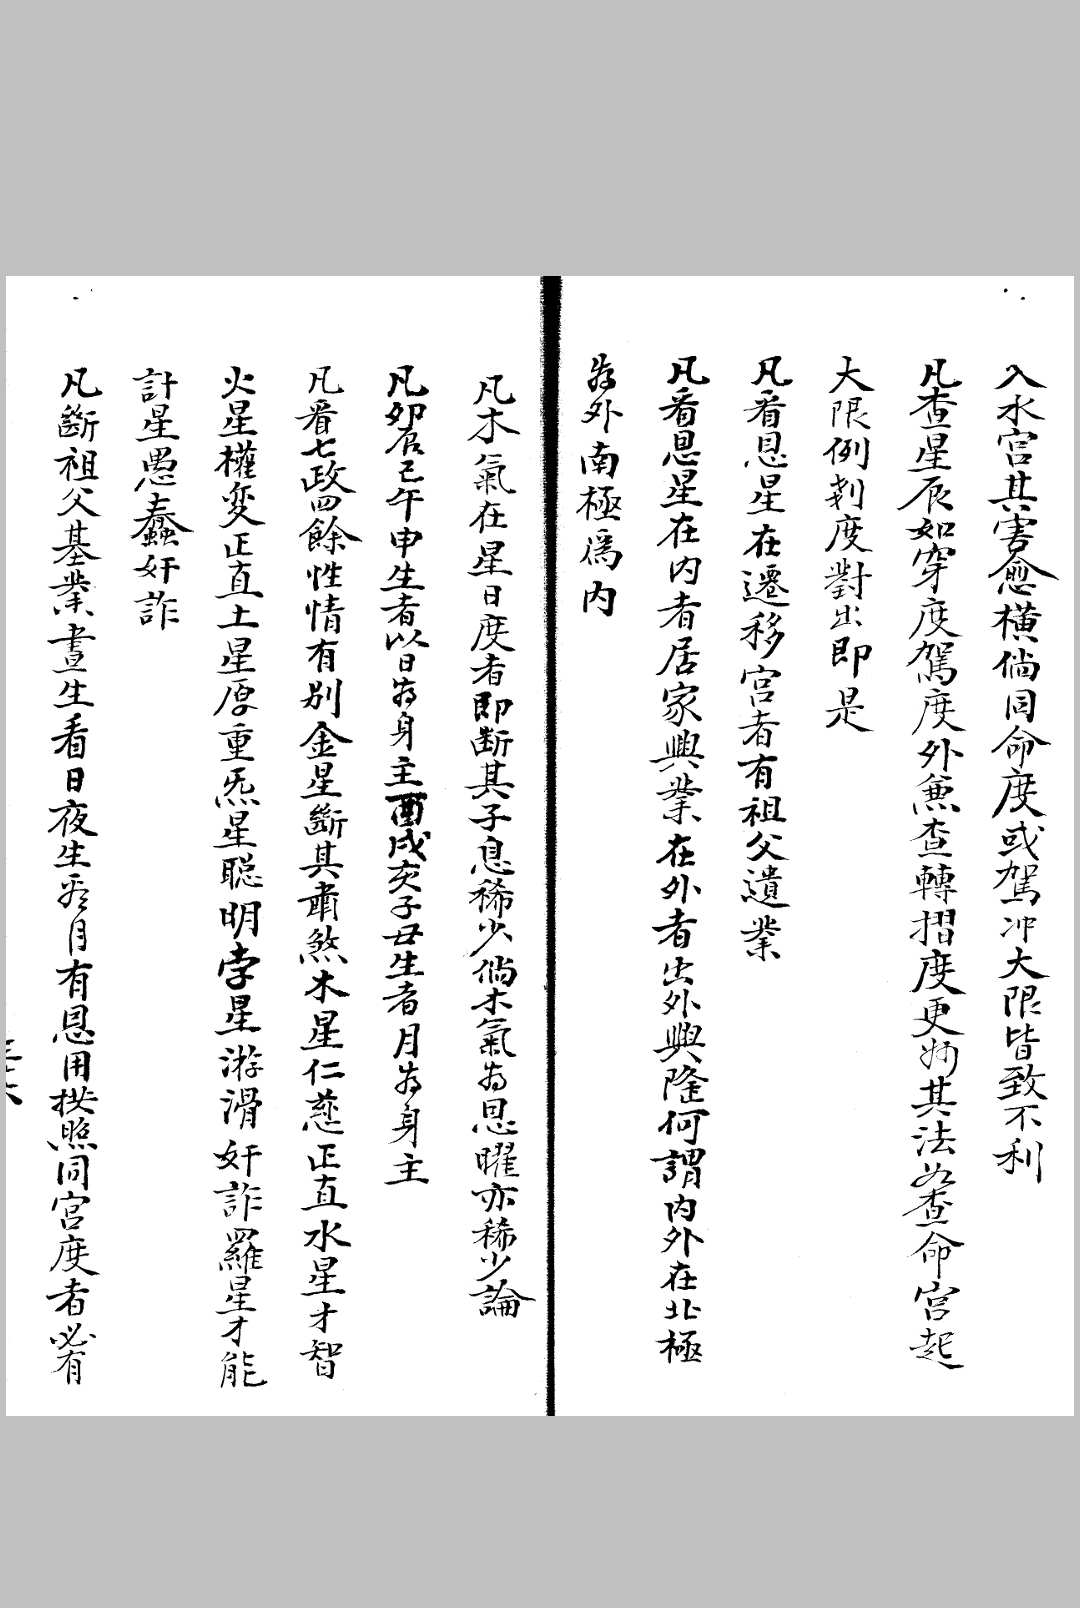 入水宮其害愈橫倘同命度或駕冲大限皆致不利
凡查星辰如穿度駕度外兼查轉摺度更妙其法如查命宮起
大限例到度對出即是
凡看恩星在遷移宮者有祖父遺業
凡看恩星在内者居家興業在外者出外興隆何謂内外在北極
為外南極爲内
凡木氣在星日度者即斷其子息稀少倘木氣為恩曜亦稀少論
凡卯辰巳午申生者以日為身主酉戌亥子丑生者月為身主
凡看七政四餘性情有别金星斷其肅煞木星仁慈正直水星才智
火星權変正直土星厚重炁星聪明孛星游滑奸詐羅星才能
計星愚蠢奸詐
凡斷祖父基業晝生看日夜生看月有恩用拱照同宮度者必有